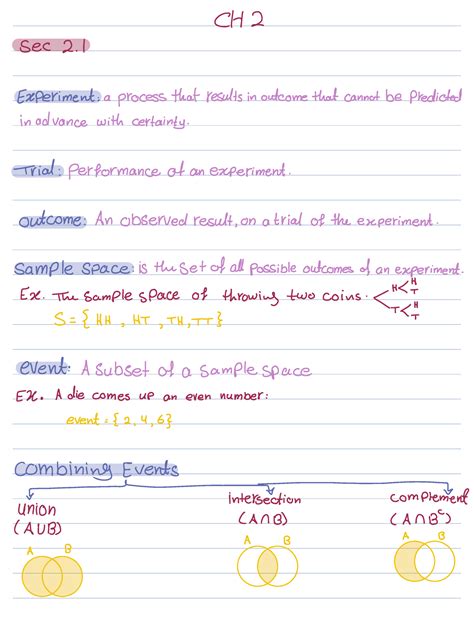 CH 2
Sec 2.1
Experiment: a process that results in outcome that cannot be Predicted
in advance with certainty.
Trial: Performance of an experiment.
outcome: An observed result, on a trial of the experiment.
Sample Space: is the set of all possible outcomes of an experiment.
Ex. The sample space of throwing two coins. H H T T H T
S = { HH , HT , TH, TT }
event: A subset of a sample space
Ex. A die comes up an even number:
event = { 2, 4, 6 }
Combining Events
Union intersection complement
(A∪B) (A∩B) (A∩Bᶜ)
A B A B A B